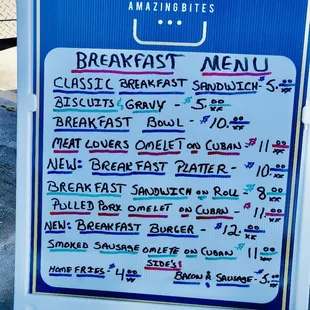 AMAZINGBITES
BREAKFAST MENU
CLASSIC BREAKFAST SANDWICH - 5.00
BISCUITS & GRAVY - $5.00
BREAKFAST BOWL - $10.00
MEAT LOVERS OMELET ON CUBAN $11.00
NEW: BREAKFAST PLATTER - $10.00
BREAKFAST SANDWICH ON ROLL - $8.00
PULLED PORK OMELET ON CUBAN - $11.00
NEW: BREAKFAST BURGER - $12.00
SMOKED SAUSAGE OMLETE ON CUBAN $11.00
SIDE'S:
HOME FRIES - $4.00 BACON & SAUSAGE - $3.00